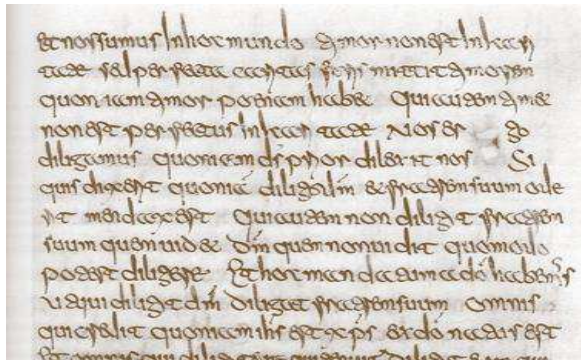 Et nos sumus In hoc mundo Timor non est In kari
tate sed perfecta caritas foras mittit timorem
quoniam timor poenam habet Qui autem timet
non est perfectus In karitate Nos er go
diligamus quoniam ds prior dilexit nos Si
quis dixerit quonia diligo dm et fratrem suum ode
rit mendax est Qui autem non diligit fratrem
suum quem uidet dm quem non uidit quomodo
potest diligere Et hoc mandatum a do habemus
ut qui diligit dm diligat fratrem suum Omnis
qui credit quoniam ihs est xps ex do natus est
Et omnis qui diligit